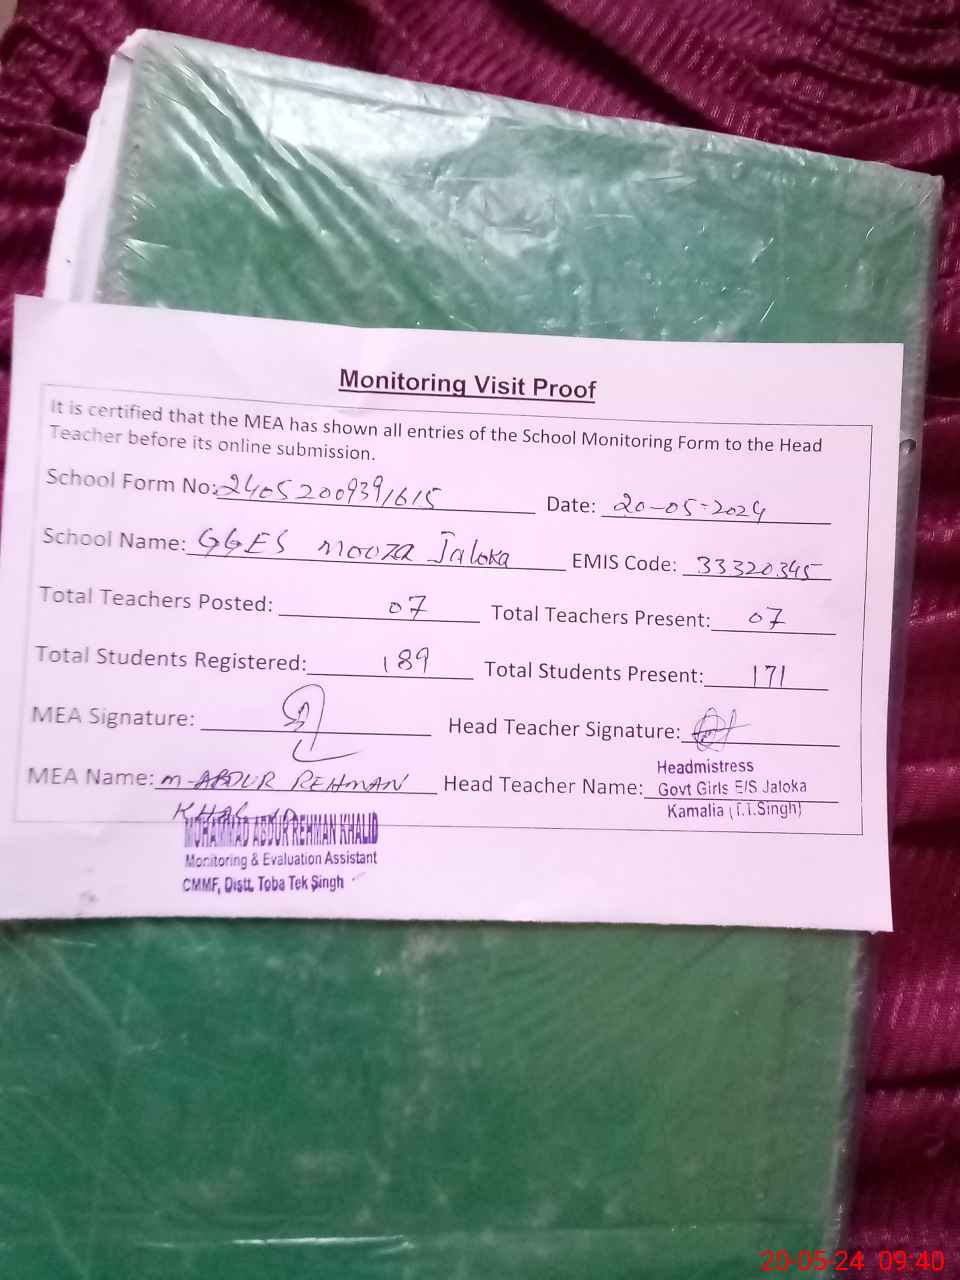 Monitoring Visit Proof
It is certified that the MEA has shown all entries of the School Monitoring Form to the Head
Teacher before its online submission.
School Form No: 24052009391615 Date: 20-05-2024
School Name: GGES MOOZA Jaloka EMIS Code: 33320345
Total Teachers Posted: 07 Total Teachers Present: 07
Total Students Registered: 189 Total Students Present: 171
MEA Signature: Head Teacher Signature:
MEA Name: M-ABDUR REHMAN Head Teacher Name:
Headmistress
Govt Girls E/S Jaloka
Kamalia (T.T.Singh)
MUHAMMAD ABDUR REHMAN KHALID
Monitoring & Evaluation Assistant
CMMF, Distt. Toba Tek Singh
20-05-24 09:40